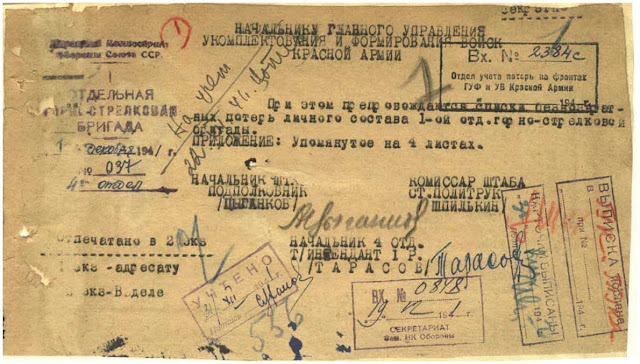 Секретно
НАЧАЛЬНИКУ ГЛАВНОГО УПРАВЛЕНИЯ
УКОМПЛЕКТОВАНИЯ И ФОРМИРОВАНИЯ ВОЙСК
КРАСНОЙ АРМИИ
Народный Комиссариат
Обороны Союза ССР.
ОТДЕЛЬНАЯ
ГОРНО-СТРЕЛКОВАЯ
БРИГАДА
декабря 1941 г.
№ 037
4 отдел
1
Вх. № 2384с
Отдел учета потерь на фронтах
ГУФ и УВ Красной Армии
194 г.
На учет
При этом препровождаются списки безвозврат-
ных потерь личного состава 1-ой отд. горно-стрелковой
бригады.
ПРИЛОЖЕНИЕ: Упомянутое на 4 листах.
НАЧАЛЬНИК ШТ.
ПОДПОЛКОВНИК
/ЦЫГАНКОВ/
КОМИССАР ШТАБА
СТ. ПОЛИТРУК
ШПИЛЬКИН/
НАЧАЛЬНИК 4 ОТД.
Т/ИНТЕНДАНТ I Р.
/ТАРАСОВ/ Тарасов
отпечатано в 2 экз
1 экз-адресату
экз-В деле
УЧТЕНО
536
ВХ № 0848
19 XII 1941 г.
СЕКРЕТАРИАТ
Зам. НК Обороны
ВЫПИСКА
при №
194 г.